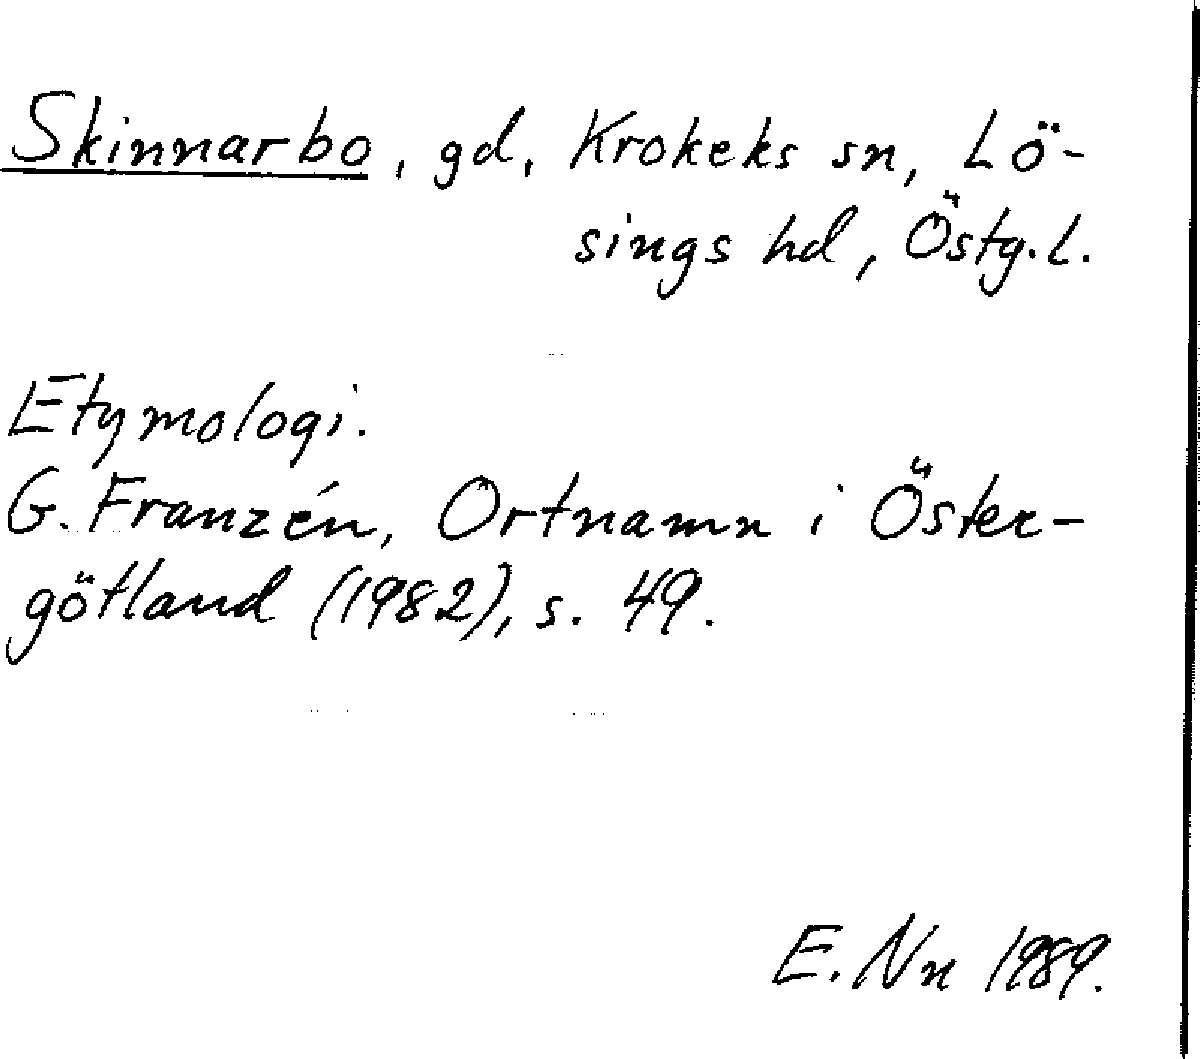 Skinnarbo, gd, Krokeks sn, Lö-
sings hd, Östg.L.
Etymologi.
G. Franzén, Ortnamn i Öster-
götland (1982), s. 49.
E. Nn 1989.